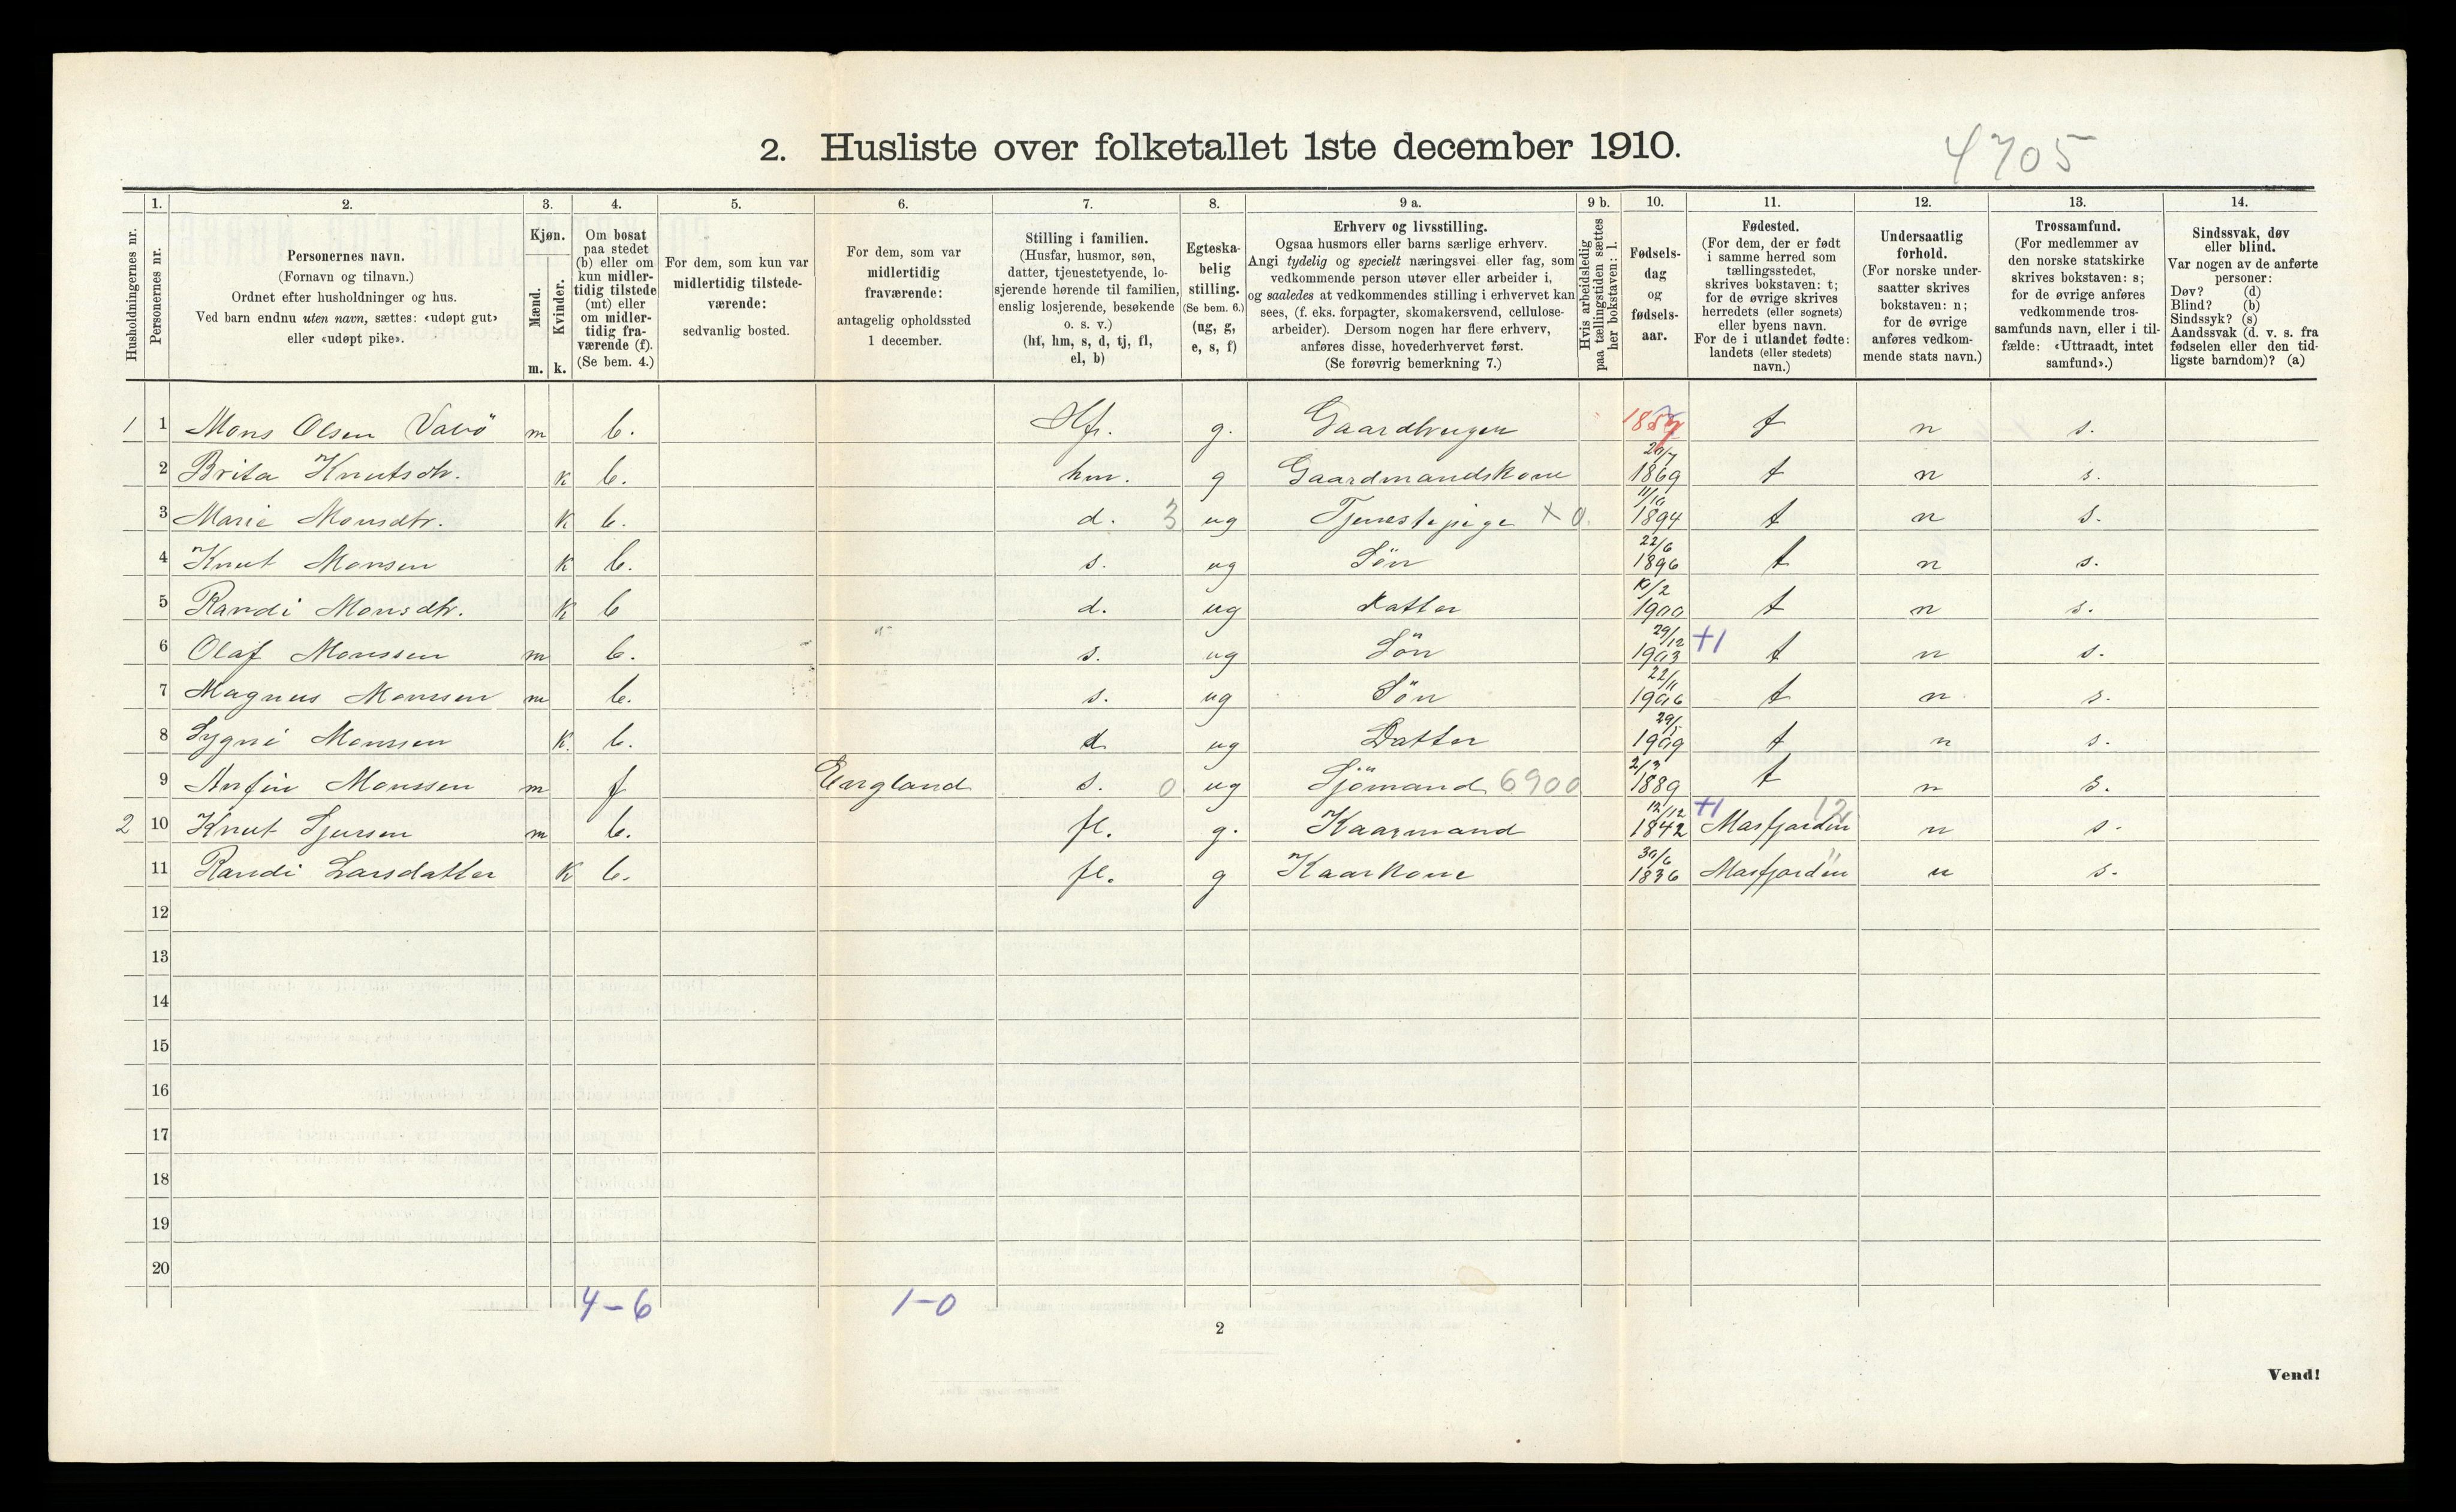 4705
2. Husliste over folketallet 1ste december 1910.
Husholdningernes nr.
1. Personernes nr.
2. Personernes navn.
(Fornavn og tilnavn.)
Ordnet efter husholdninger og hus.
Ved barn endnu uten navn, sættes: «udøpt gut»
eller «udøpt pike».
3. Kjøn.
Mænd. m.
Kvinder. k.
4. Om bosat
paa stedet
(b) eller om
kun midler-
tidig tilstede
(mt) eller
om midler-
tidig fra-
værende (f).
(Se bem. 4.)
5. For dem, som kun var
midlertidig tilstede-
værende:
sedvanlig bosted.
6. For dem, som var
midlertidig
fraværende:
antagelig opholdssted
1 december.
7. Stilling i familien.
(Husfar, husmor, søn,
datter, tjenestetyende, lo-
sjerende hørende til familien,
enslig losjerende, besøkende
o. s. v.)
(hf, hm, s, d, tj, fl,
el, b)
8. Egteska-
belig
stilling.
(Se bem. 6.)
(ug, g,
e, s, f)
9 a. Erhverv og livsstilling.
Ogsaa husmors eller barns særlige erhverv.
Angi tydelig og specielt næringsvei eller fag, som
vedkommende person utøver eller arbeider i,
og saaledes at vedkommendes stilling i erhvervet kan
sees, (f. eks. forpagter, skomakersvend, cellulose-
arbeider). Dersom nogen har flere erhverv,
anføres disse, hovederhvervet først.
(Se forøvrig bemerkning 7.)
9 b. Hvis arbeidsledig
paa tællingstiden sættes
her bokstaven: l.
10. Fødsels-
dag
og
fødsels-
aar.
11. Fødested.
(For dem, der er født
i samme herred som
tællingsstedet,
skrives bokstaven: t;
for de øvrige skrives
herredets (eller sognets)
eller byens navn.
For de i utlandet fødte:
landets (eller stedets)
navn.)
12. Undersaatlig
forhold.
(For norske under-
saatter skrives
bokstaven: n;
for de øvrige
anføres vedkom-
mende stats navn.)
13. Trossamfund.
(For medlemmer av
den norske statskirke
skrives bokstaven: s;
for de øvrige anføres
vedkommende tros-
samfunds navn, eller i til-
fælde: «Uttraadt, intet
samfund».)
14. Sindssvak, døv
eller blind.
Var nogen av de anførte
personer:
Døv? (d)
Blind? (b)
Sindssyk? (s)
Aandssvak (d. v. s. fra
fødselen eller den tid-
ligste barndom)? (a)
1 1 Mons Olsen m b. Hf. g. Gaardbruger t n s.
2 Brita Knutsdtr. k b. hm. g Gaardmandskone 26/7 1869 t n s.
3 Marie Monsdtr. k b. d. 3 ug Tjenestepige x 0. 11/10 1894 t n s.
4 Knut Monsen k b. s. ug Sön 22/6 1896 t n s.
5 Randi Monsdtr. k b d. ug Datter 1900 t n s.
6 Olaf Monssen m b. s. ug Sön 29/12 1903 +1 t n s.
7 Magnus Monssen m b. s. ug Sön 22/11 1906 t n s.
8 Sygni Monssen k. b. d ug Datter 1909 t n s.
9 Anfin Monssen m f England s. 0 ug Sjömand 6900 2/3 1889 t n s.
2 10 Knut Sjursen m b. fl. g. Kaarmand 12/12 1842 +1 Masfjorden 12 n s.
11 Randi Larsdatter k b. fl. g Kaarkone 30/6 1836 Masfjorden " n s.
12
13
14
15
16
17
18
19
20
4-6 1-0
2
Vend!